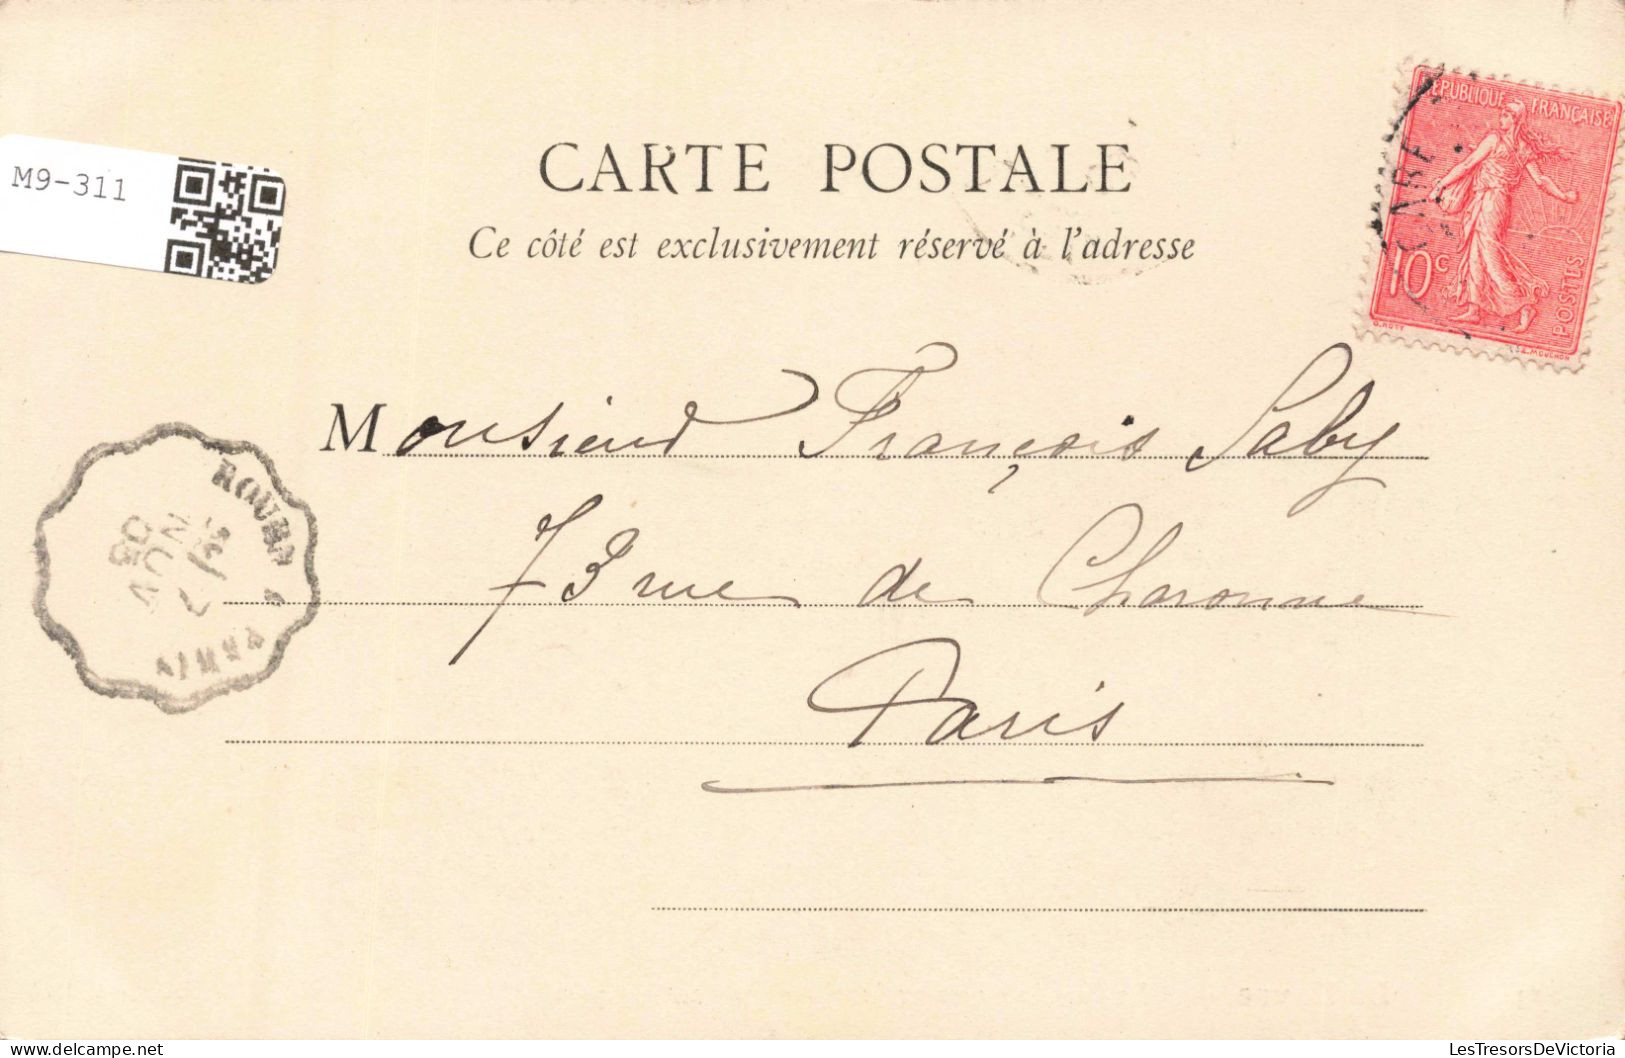 M9-311
CARTE POSTALE
Ce côté est exclusivement réservé à l'adresse
RÉPUBLIQUE FRANÇAISE
10c
POSTES
O. ROTY
E. MOUCHON
Monsieur François Saby
73 rue de Charonne
Paris
NOV
LesTresorsDeVictoria